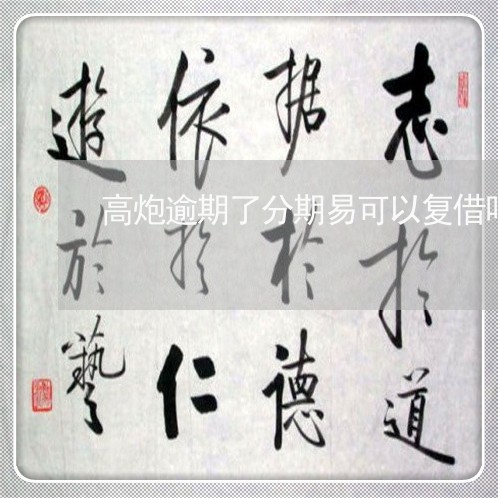 志於道
据於德
依於仁
遊於藝
高炮逾期了分期易可以复借